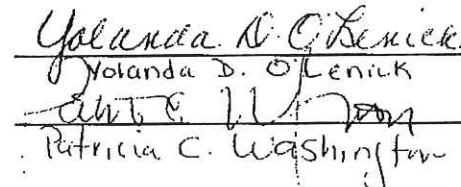 Yolanda D. O'Lenick
Yolanda D. O'Lenick
Patricia C. Washington